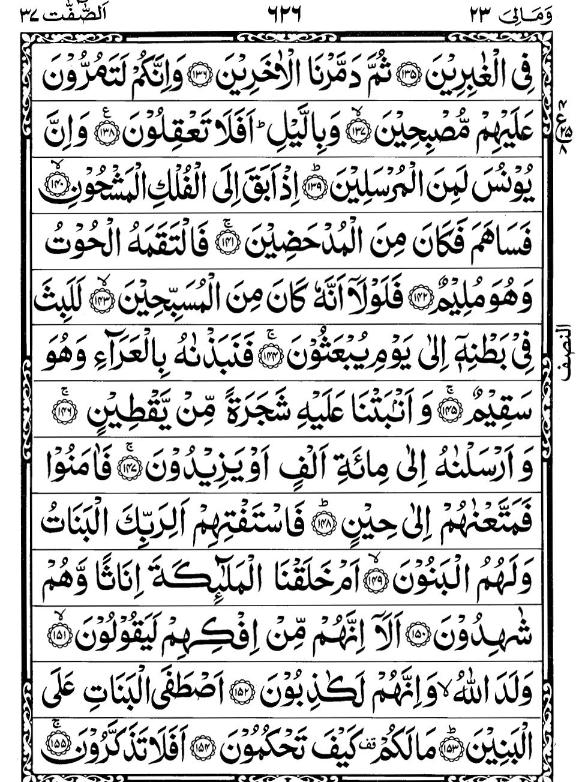 وَمَالِیَ ٢٣ ٦٢٦ اَلصّٰٓفّٰت ٣٧
فِی الْغٰبِرِیْنَ ﴿١٣٥﴾ ثُمَّ دَمَّرْنَا الْاٰخَرِیْنَ ﴿١٣٦﴾ وَاِنَّكُمْ لَتَمُرُّوْنَ
عَلَیْهِمْ مُّصْبِحِیْنَ ﴿١٣٧﴾ۙ وَبِالَّیْلِ ؕ اَفَلَا تَعْقِلُوْنَ ﴿١٣٨﴾ۧ وَاِنَّ
٤ ع ٢٥ ٨
یُوْنُسَ لَمِنَ الْمُرْسَلِیْنَ ﴿١٣٩﴾ؕ اِذْ اَبَقَ اِلَی الْفُلْكِ الْمَشْحُوْنِ ﴿١٤٠﴾ۙ
فَسَاهَمَ فَكَانَ مِنَ الْمُدْحَضِیْنَ ﴿١٤١﴾ۚ فَالْتَقَمَهُ الْحُوْتُ
وَهُوَ مُلِیْمٌ ﴿١٤٢﴾ فَلَوْلَاۤ اَنَّهٗ كَانَ مِنَ الْمُسَبِّحِیْنَ ﴿١٤٣﴾ۙ لَلَبِثَ
النصف
فِیْ بَطْنِهٖۤ اِلٰی یَوْمِ یُبْعَثُوْنَ ﴿١٤٤﴾ۚ فَنَبَذْنٰهُ بِالْعَرَآءِ وَهُوَ
سَقِیْمٌ ﴿١٤٥﴾ۚ وَاَنْۢبَتْنَا عَلَیْهِ شَجَرَةً مِّنْ یَّقْطِیْنٍ ﴿١٤٦﴾ۚ
وَاَرْسَلْنٰهُ اِلٰی مِائَةِ اَلْفٍ اَوْ یَزِیْدُوْنَ ﴿١٤٧﴾ۚ فَاٰمَنُوْا
فَمَتَّعْنٰهُمْ اِلٰی حِیْنٍ ﴿١٤٨﴾ؕ فَاسْتَفْتِهِمْ اَلِرَبِّكَ الْبَنَاتُ
وَلَهُمُ الْبَنُوْنَ ﴿١٤٩﴾ۙ اَمْ خَلَقْنَا الْمَلٰٓئِكَةَ اِنَاثًا وَّهُمْ
شٰهِدُوْنَ ﴿١٥٠﴾ اَلَاۤ اِنَّهُمْ مِّنْ اِفْكِهِمْ لَیَقُوْلُوْنَ ﴿١٥١﴾ۙ
وَلَدَ اللّٰهُ ۙ وَاِنَّهُمْ لَكٰذِبُوْنَ ﴿١٥٢﴾ اَصْطَفَی الْبَنَاتِ عَلَی
الْبَنِیْنَ ﴿١٥٣﴾ؕ مَالَكُمْ قف كَیْفَ تَحْكُمُوْنَ ﴿١٥٤﴾ اَفَلَا تَذَكَّرُوْنَ ﴿١٥٥﴾ۚ